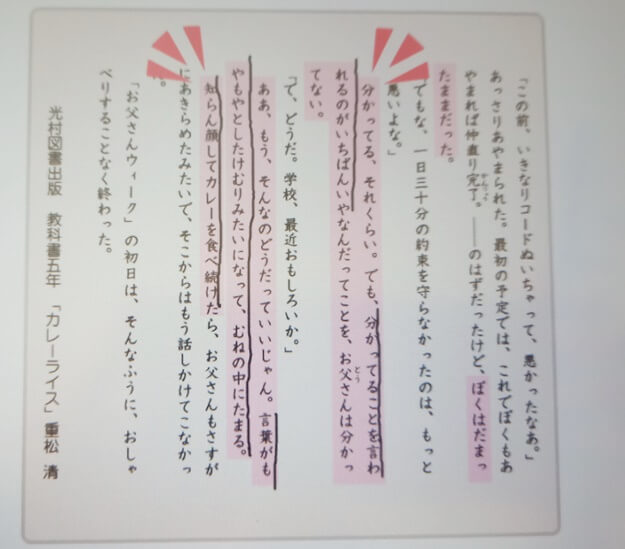 「この前、いきなりコードぬいちゃって、悪かったなあ。」
あっさりあやまられた。最初の予定では、これでぼくもあ
やまれば仲直り完了。――のはずだったけど、ぼくはだまっ
かんりょう
たままだった。
「でもな、一日三十分の約束を守らなかったのは、もっと
悪いよな。」
分かってる、それくらい。でも、分かってることを言わ
れるのがいちばんいやなんだってことを、お父さんは分かっ
とう
てない。
「で、どうだ。学校、最近おもしろいか。」
ああ、もう、そんなのどうだっていいじゃん。言葉がも
やもやとしたけむりみたいになって、むねの中にたまる。
知らん顔してカレーを食べ続けたら、お父さんもさすが
にあきらめたみたいで、そこからはもう話しかけてこなかっ
た。
「お父さんウィーク」の初日は、そんなふうに、おしゃ
べりすることなく終わった。
光村図書出版　教科書五年　「カレーライス」重松　清